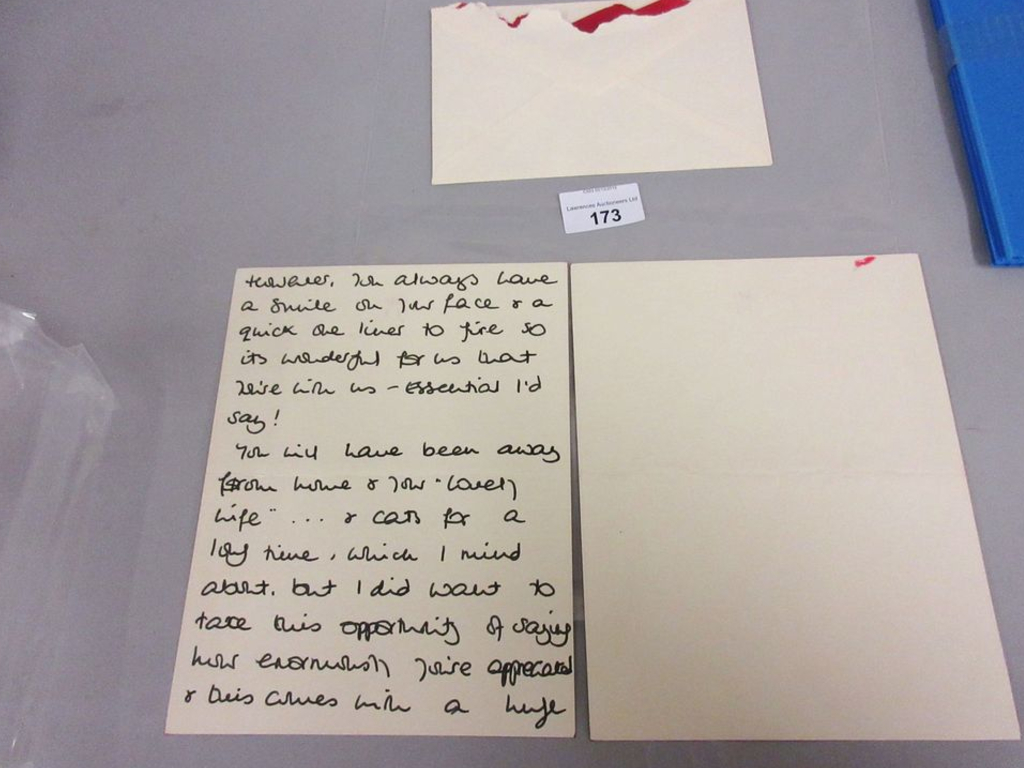 Lawrences Auctioneers Ltd
173
However, you always have
a smile on your face & a
quick one liner to fire so
its wonderful for us that
you're with us - essential I'd
say!
You will have been away
from home & your "lovely
wife" ... & cats for a
long time, which I mind
about, but I did want to
take this opportunity of saying
how enormously you're appreciated
& this comes with a huge